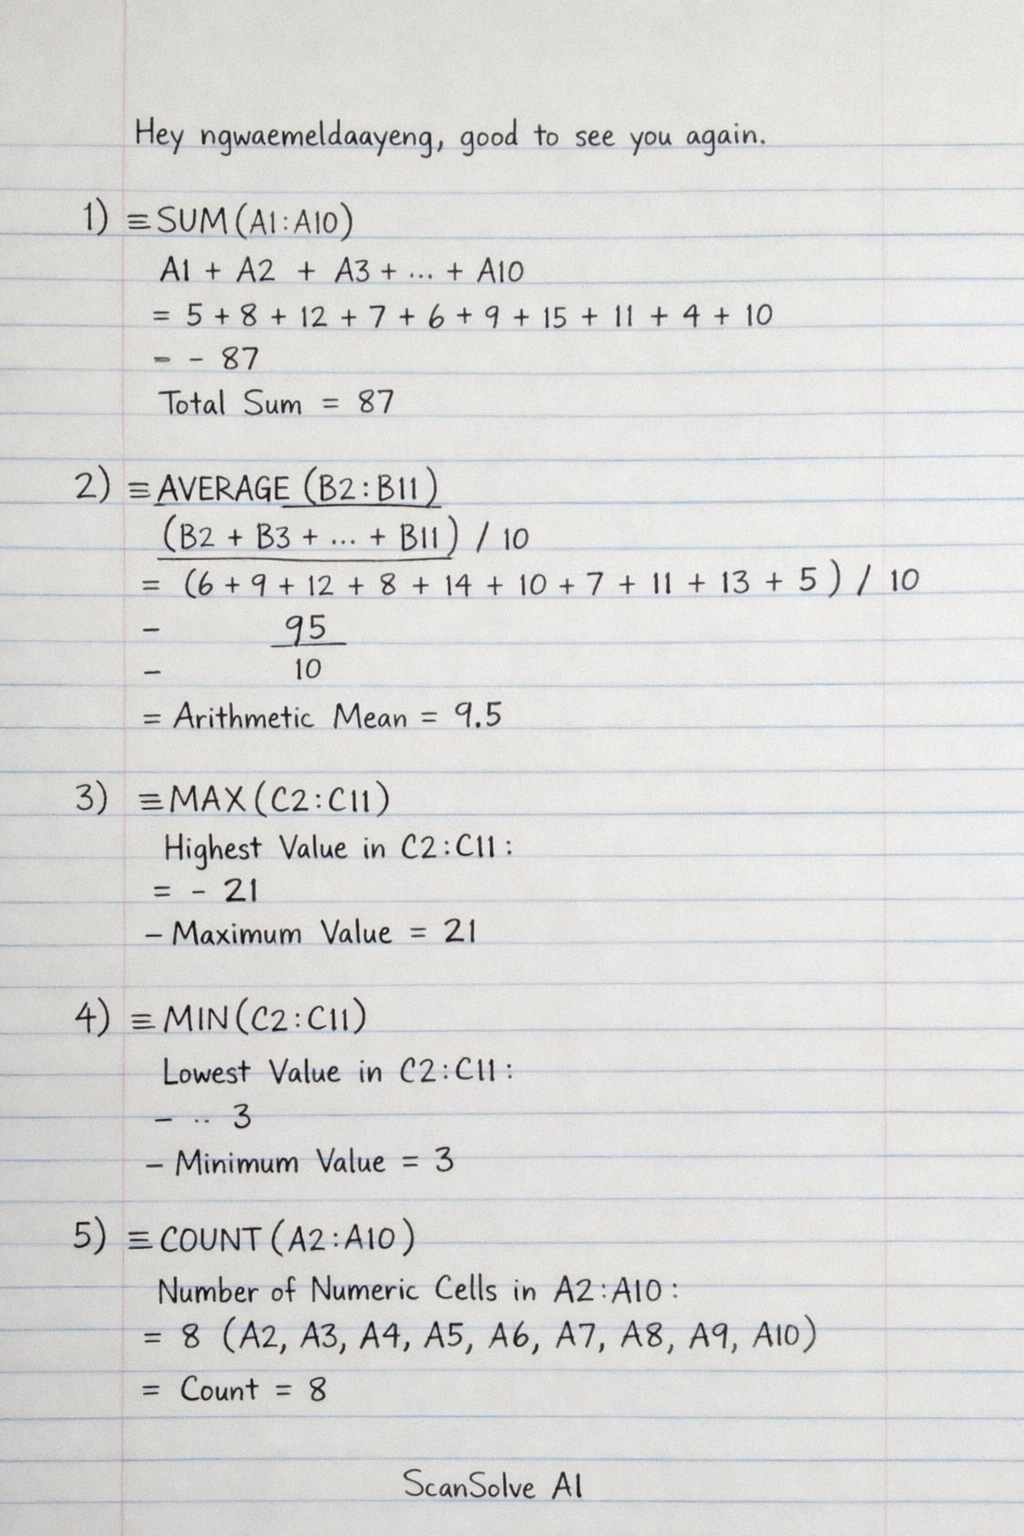 Hey ngwaemeldaayeng, good to see you again.
1) ≡SUM(A1:A10)
A1 + A2 + A3 + ... + A10
= 5 + 8 + 12 + 7 + 6 + 9 + 15 + 11 + 4 + 10
= - 87
Total Sum = 87
2) ≡AVERAGE (B2:B11)
(B2 + B3 + ... + B11) / 10
= (6 + 9 + 12 + 8 + 14 + 10 + 7 + 11 + 13 + 5) / 10
- 95
- 10
= Arithmetic Mean = 9.5
3) ≡MAX(C2:C11)
Highest Value in C2:C11:
= - 21
- Maximum Value = 21
4) ≡MIN(C2:C11)
Lowest Value in C2:C11:
- .. 3
- Minimum Value = 3
5) ≡COUNT(A2:A10)
Number of Numeric Cells in A2:A10:
= 8 (A2, A3, A4, A5, A6, A7, A8, A9, A10)
= Count = 8
ScanSolve AI